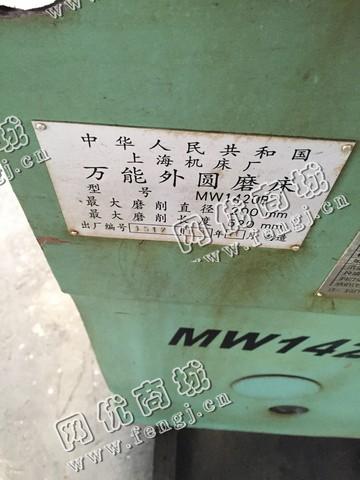 中华人民共和国
上海机床厂
万能外圆磨床
型号 MW1420
最大磨削直径 200 mm
最大磨削长度 mm
出厂编号 年 月制造
MW142
网优商城
www.fengj.cn
网优商城
www.fengj.cn
网优商城
www.fengj.cn
网优商城
www.fengj.cn